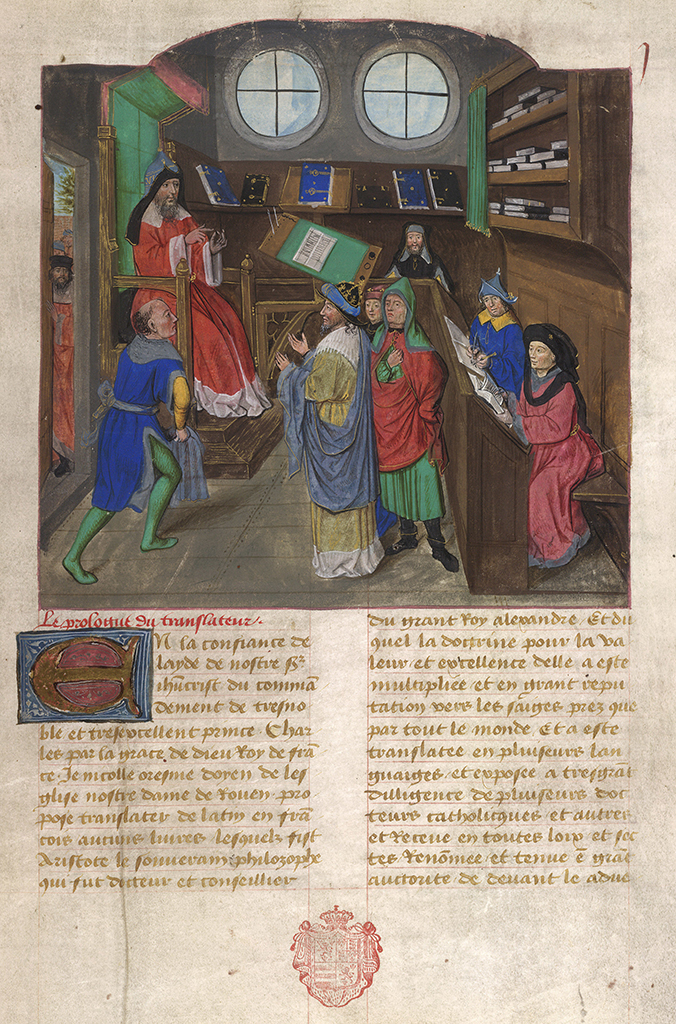 Le prologue du translateur.
EN la confiance de
layde de nostre Sr
ihucrist du comma
dement de tresno
ble et tresexcellent prince Char
les par la grace de dieu Roy de fra
ce Je nicolle oresme doyen de les
glise nostre dame de Rouen pro
pose translater de latin en fra
cois aucuns liures lesquelz fist
Aristote le souuerain philozophe
qui fut docteur et conseillier
du grant Roy alexandre Et du
quel la doctrine pour la va
leur et excellence delle a este
multipliee et en grant repu
tation vers les saiges prez que
par tout le monde Et a este
translatee en pluiseurs lan
guaiges et exposee a tresgrat
dilligence de pluiseurs doc
teurs catholicques et autres
et Receue en toutes loix et sec
tes Renommee et tenue e grat
auctorite de deuant le adue